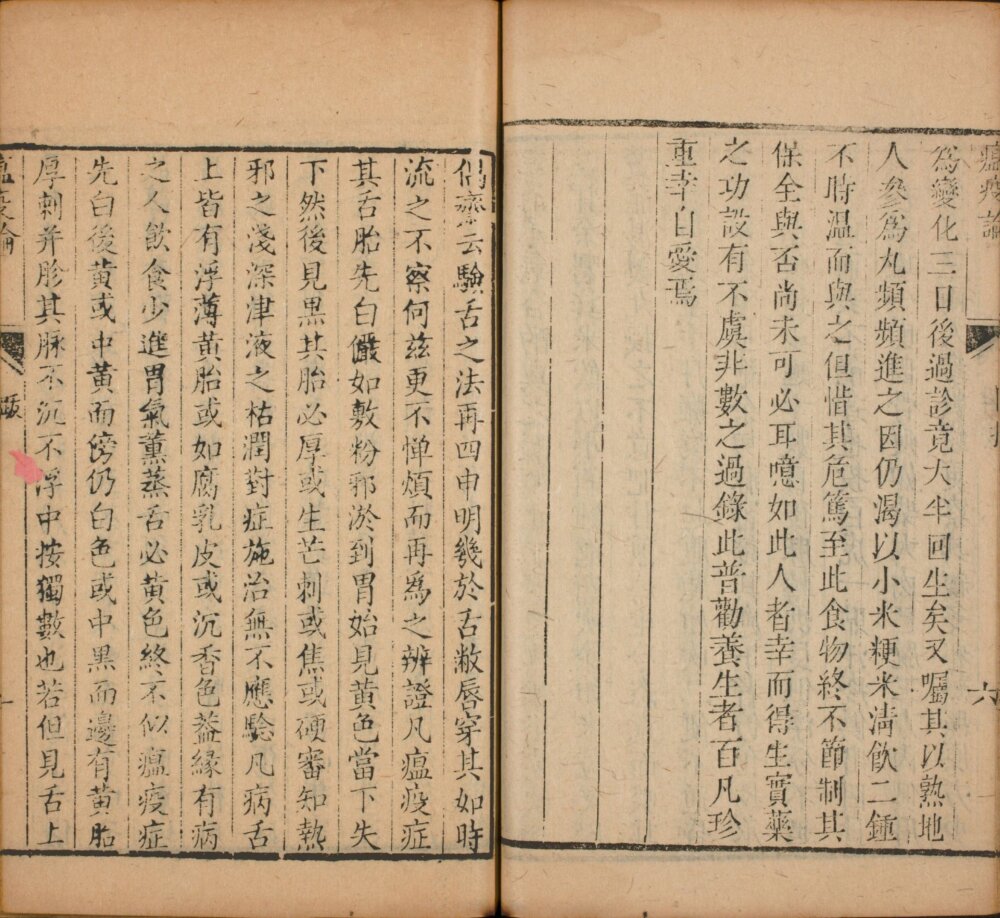 瘟疫論
六
為變化三日後過診竟大半回生矣又囑其以熟地
人參為丸頻頻進之因仍渴以小米粳米清飲二鍾
不時温而與之但惜其危篤至此食物終不節制其
保全與否尚未可必耳噫如此人者幸而得生實藥
之功設有不虞非數之過錄此普勸養生者百凡珍
重幸自愛焉
偶齋云驗舌之法再四申明幾於舌敝唇穿其如時
流之不察何兹更不憚煩而再為之辨證凡瘟疫症
其舌胎先白儼如敷粉邪淤到胃始見黄色當下失
下然後見黑其胎必厚或生芒刺或焦或硬審知熱
邪之淺深津液之枯潤對症施治無不應騐凡病舌
上皆有浮薄黄胎或如腐乳皮或沉香色葢緣有病
之人飲食少進胃氣薰蒸舌必黄色終不似瘟疫症
先白後黄或中黄而傍仍白色或中黑而邊有黄胎
厚刺并胗其脉不沉不浮中按獨數也若但見舌上
瘟疫論
跋
一